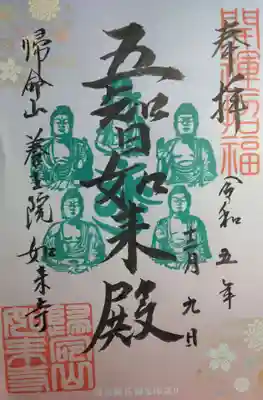 開運招福
奉拝
令和五年
十一月九日
五智如来殿
帰命山養生院如来寺
帰命山
如来寺